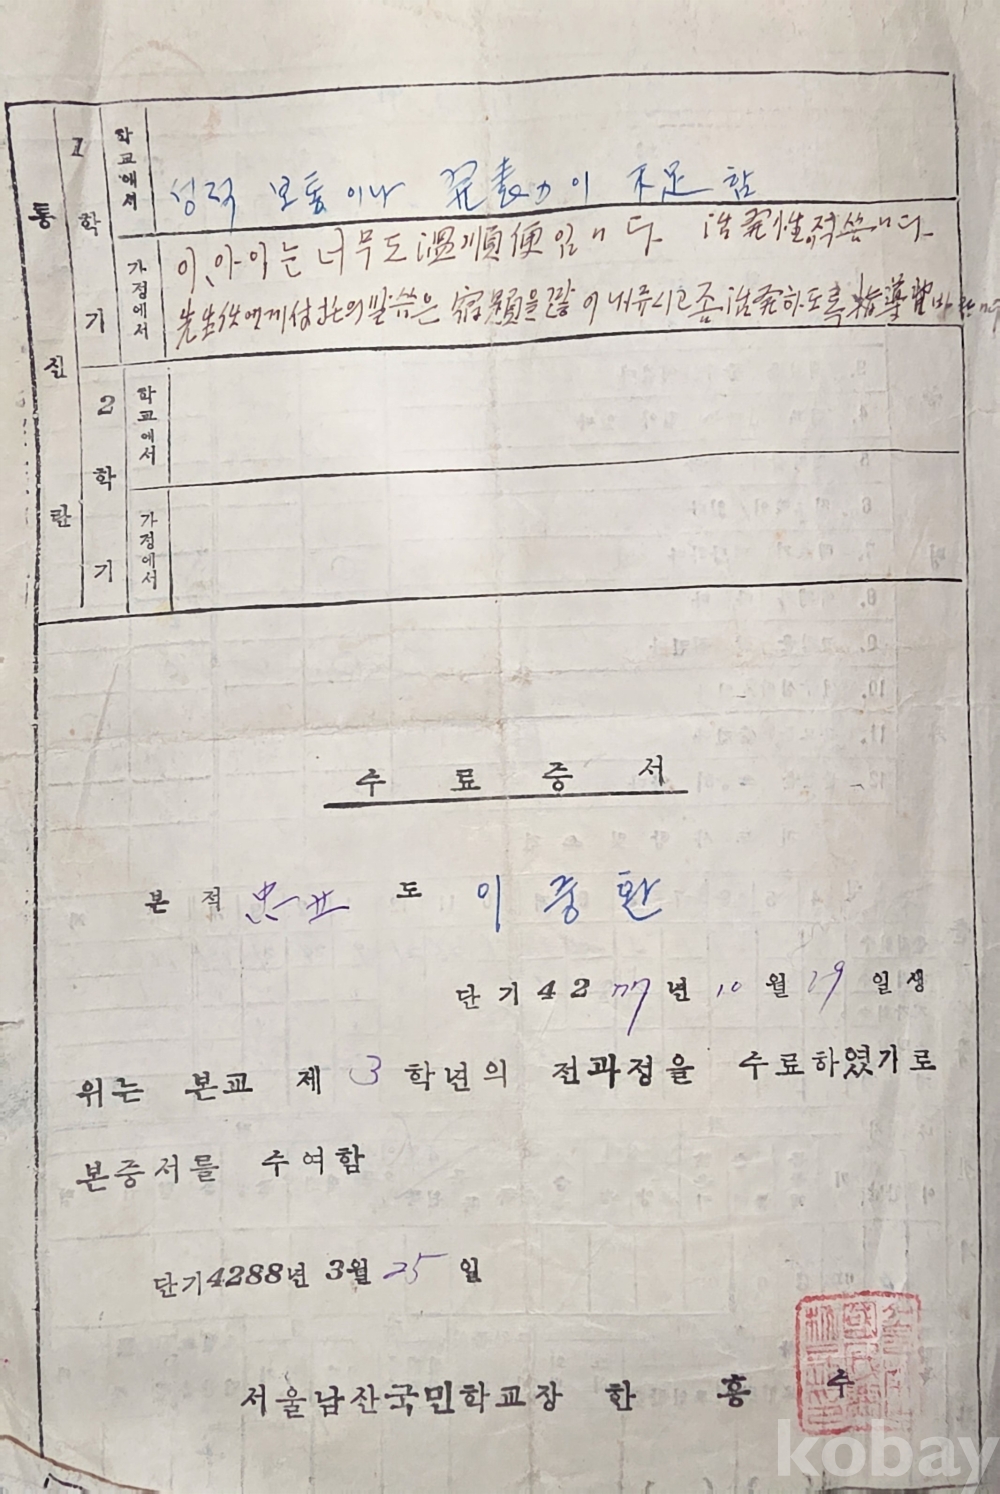 통신란
1학기
학교에서
성적 보통이나 発表力이 不足함
가정에서
이 아이는 너무도 温順便입니다. 活発性적씀니다.
先生任에게 付托의말씀은 宿題을많이 내주시고 좀 活発하도록 指導望바랍니다
2학기
학교에서
가정에서
수료증서
본적 忠北 도 이중환
단기 4277년 10월 19일생
위는 본교 제 3학년의 전과정을 수료하였기로
본증서를 수여함
단기4288년 3월 25일
서울남산국민학교장 한흥수
kobay